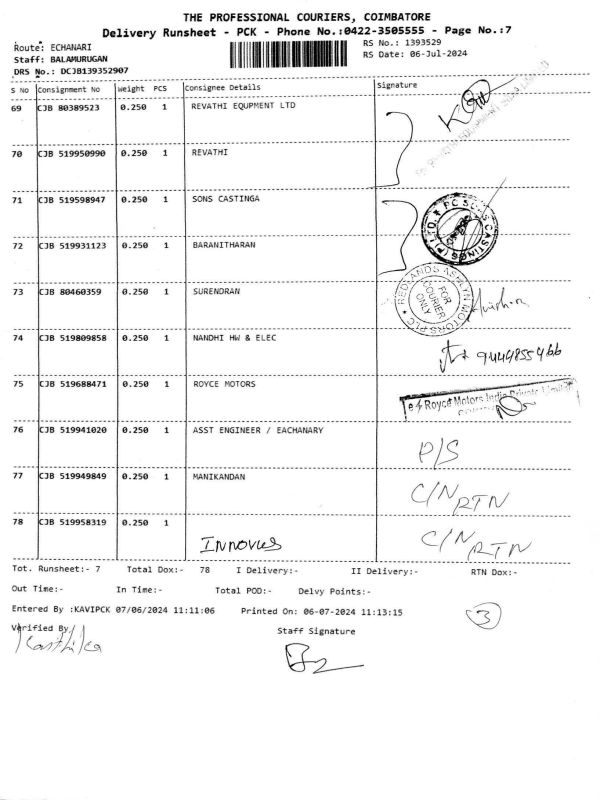 THE PROFESSIONAL COURIERS, COIMBATORE
Delivery Runsheet - PCK - Phone No.:0422-3505555 - Page No.:7
Route: ECHANARI
RS No.: 1393529
Staff: BALAMURUGAN
RS Date: 06-Jul-2024
DRS No.: DCJB139352907
S No Consignment No Weight PCS Consignee Details Signature
69 CJB 80389523 0.250 1 REVATHI EQUPMENT LTD
70 CJB 519950990 0.250 1 REVATHI
71 CJB 519598947 0.250 1 SONS CASTINGA
PC SONS CASTINGS (P) LTD.
72 CJB 519931123 0.250 1 BARANITHARAN
73 CJB 80460359 0.250 1 SURENDRAN
REDLANDS ASHLYN MOTORS PLC
FOR
COURIER
ONLY
74 CJB 519809858 0.250 1 NANDHI HW & ELEC
9444855466
75 CJB 519688471 0.250 1 ROYCE MOTORS
Royce Motors India Private Limited
76 CJB 519941020 0.250 1 ASST ENGINEER / EACHANARY
P/S
77 CJB 519949849 0.250 1 MANIKANDAN
C/N RTN
78 CJB 519958319 0.250 1
INNOVUS
C/N RTN
Tot. Runsheet:- 7 Total Dox:- 78 I Delivery:- II Delivery:- RTN Dox:-
Out Time:- In Time:- Total POD:- Delvy Points:-
Entered By :KAVIPCK 07/06/2024 11:11:06 Printed On: 06-07-2024 11:13:15
3
Verified By
Staff Signature